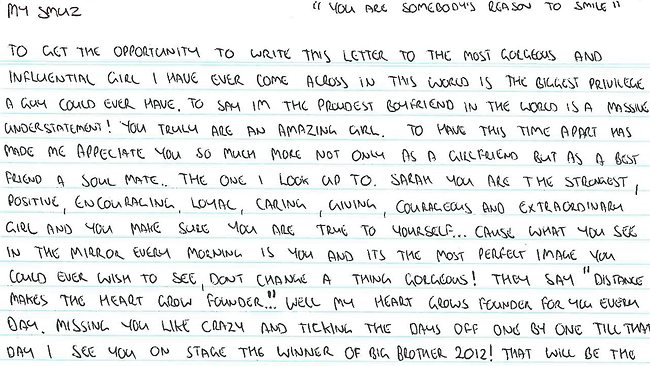 MY SMUZ "YOU ARE SOMEBODY'S REASON TO SMILE"
TO GET THE OPPORTUNITY TO WRITE THIS LETTER TO THE MOST GORGEOUS AND
INFLUENTIAL GIRL I HAVE EVER COME ACROSS IN THIS WORLD IS THE BIGGEST PRIVILEGE
A GUY COULD EVER HAVE. TO SAY IM THE PROUDEST BOYFRIEND IN THE WORLD IS A MASSIVE
UNDERSTATEMENT! YOU TRULY ARE AN AMAZING GIRL. TO HAVE THIS TIME APART HAS
MADE ME APPECIATE YOU SO MUCH MORE NOT ONLY AS A GIRLFRIEND BUT AS A BEST
FRIEND A SOUL MATE.. THE ONE I LOOK UP TO. SARAH YOU ARE THE STRONGEST,
POSITIVE, ENCOURAGING, LOYAL, CARING, GIVING, COURAGEOUS AND EXTRAORDINARY
GIRL AND YOU MAKE SURE YOU ARE TRUE TO YOURSELF... CAUSE WHAT YOU SEE
IN THE MIRROR EVERY MORNING IS YOU AND ITS THE MOST PERFECT IMAGE YOU
COULD EVER WISH TO SEE, DONT CHANGE A THING GORGEOUS! THEY SAY "DISTANCE
MAKES THE HEART GROW FOUNDER..." WELL MY HEART GROWS FOUNDER FOR YOU EVERY
DAY. MISSING YOU LIKE CRAZY AND TICKING THE DAYS OFF ONE BY ONE TILL THAT
DAY I SEE YOU ON STAGE THE WINNER OF BIG BROTHER 2012! THAT WILL BE THE